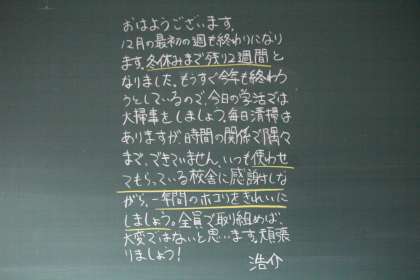 おはようございます。
12月の最初の週も終わりになり
ます。冬休みまで残り2週間と
なりました。もうすぐ今年も終わろ
うとしているので、今日の学活では
大掃事をしましょう。毎日清掃は
ありますが、時間の関係で隅々
まで、できていません。いつも使わせ
てもらっている校舎に感謝しな
がら、一年間のホコリをきれいに
しましょう。全員で取り組めば、
大変ではないと思います。頑張
りましょう!
浩介